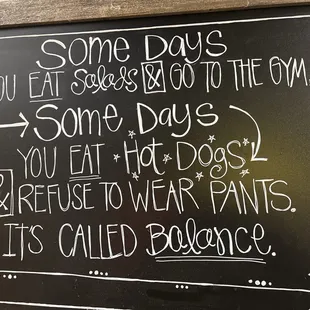 Some Days
YOU EAT Salads & GO TO THE GYM.
Some Days
YOU EAT Hot Dogs
& REFUSE TO WEAR PANTS.
IT'S CALLED Balance.